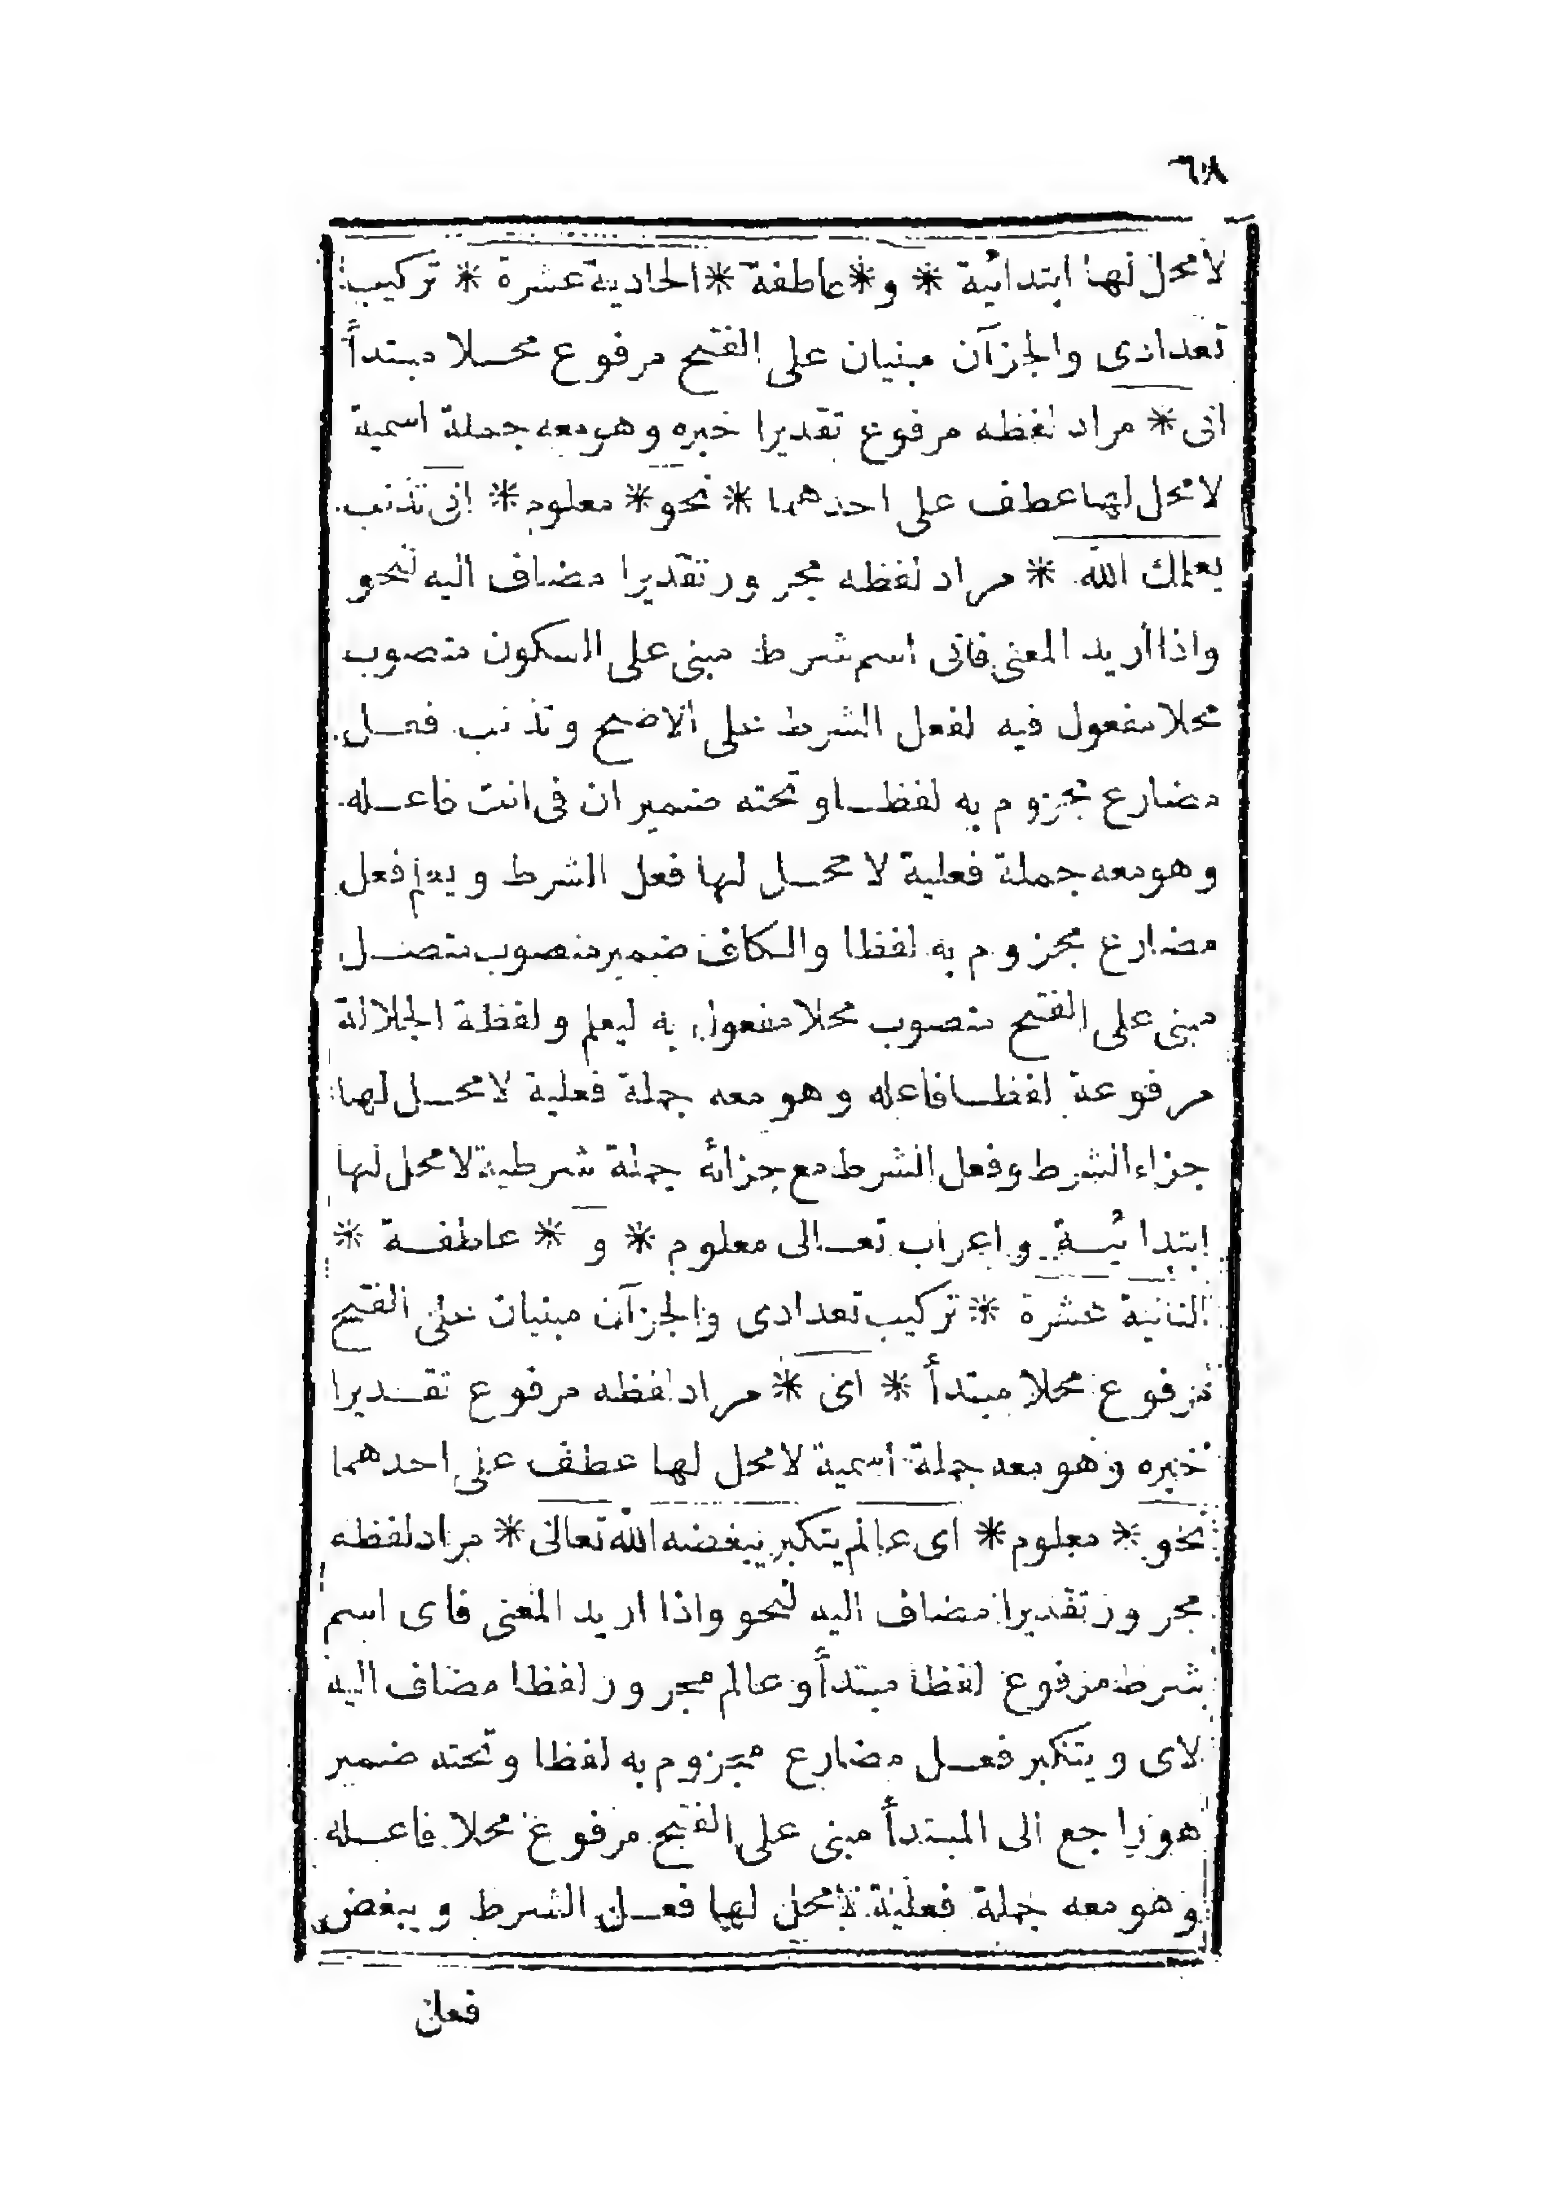 ٦٨
لا محل لها ابتدائية * و * عاطفة * الحادية عشرة * تركيب
تعدادى والجزآن مبنيان على الفتح مرفوع محلا مبتدأ
انى * مراد لفظه مرفوع تقديرا خبره وهو معه جملة اسمية
لا محل لها عطف على احدهما * نحو * معلوم * انى تذنب
يعلمك الله * مراد لفظه مجرور تقديرا مضاف اليه لنحو
واذا أريد المعنى فانى اسم شرط مبنى على السكون منصوب
محلا مفعول فيه لفعل الشرط على الاصح وتذنب فعل
مضارع مجزوم به لفظا وتحته ضمير ان فى انت فاعله
وهو معه جملة فعلية لا محل لها فعل الشرط ويعلم فعل
مضارع مجزوم به لفظا والكاف ضمير منصوب متصل
مبنى على الفتح منصوب محلا مفعول به ليعلم ولفظة الجلالة
مرفوعة لفظا فاعله وهو معه جملة فعلية لا محل لها
جزاء الشرط وفعل الشرط مع جزائه جملة شرطية لا محل لها
ابتدائية واعراب تعالى معلوم * و * عاطفة *
الثانية عشرة * تركيب تعدادى والجزآن مبنيان على الفتح
مرفوع محلا مبتدأ * اى * مراد لفظه مرفوع تقديرا
خبره وهو معه جملة اسمية لا محل لها عطف على احدهما
نحو * معلوم * اى عالم يتكبر يبغضه الله تعالى * مراد لفظه
مجرور تقديرا مضاف اليه لنحو واذا اريد المعنى فاى اسم
شرط مرفوع لفظا مبتدأ وعالم مجرور لفظا مضاف اليه
لاى ويتكبر فعل مضارع مجزوم به لفظا وتحته ضمير
هو راجع الى المبتدأ مبنى على الفتح مرفوع محلا فاعله
وهو معه جملة فعلية لا محل لها فعل الشرط ويبغض
فعل